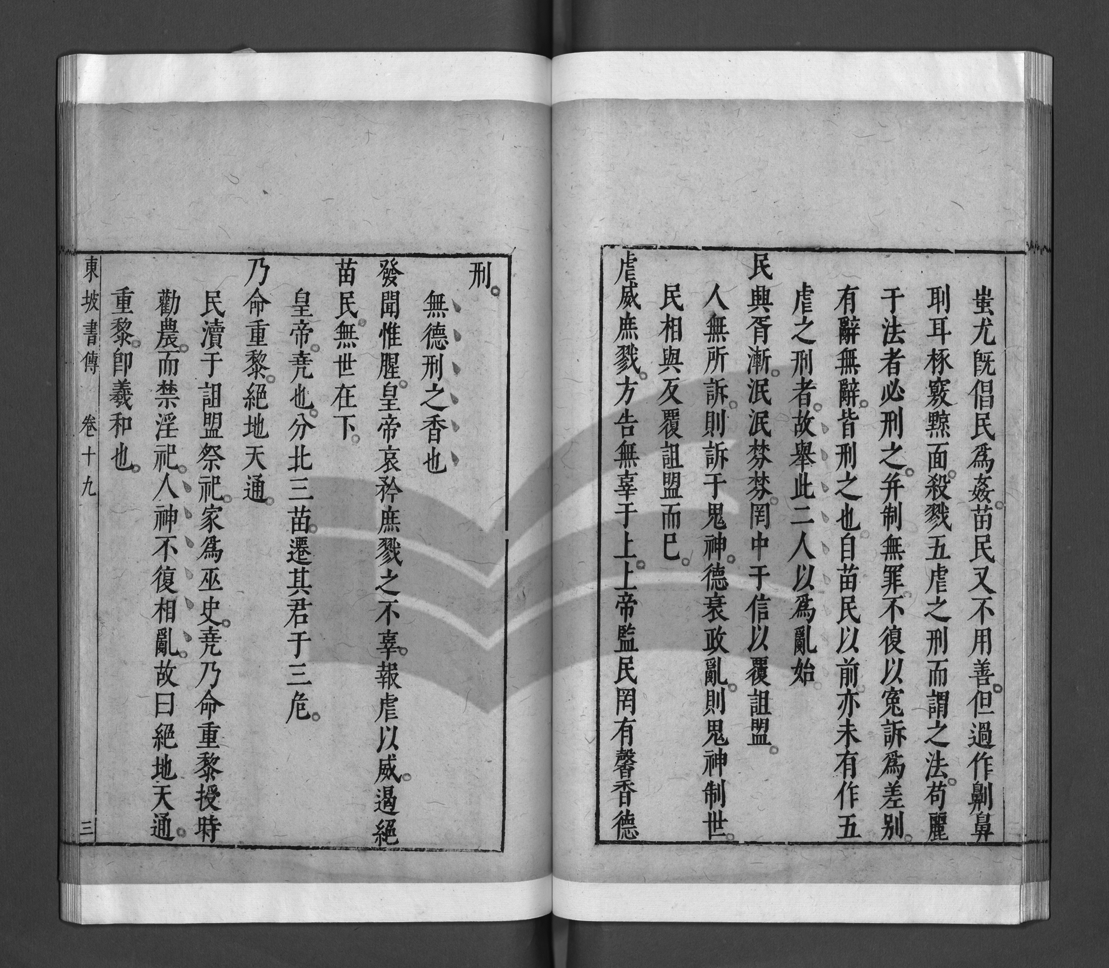 蚩尤旣倡民爲姦。苗民又不用善。但過作劓鼻
刵耳椓竅黥面。殺戮五虐之刑而謂之法。苟麗
于法者必刑之。并制無罪。不復以寃訴爲差别。
有辭無辭。皆刑之也。自苗民以前。亦未有作五
虐之刑者。故舉此二人以爲亂始。
民興胥漸。泯泯棼棼。罔中于信以覆詛盟。
人無所訴。則訴于鬼神。德衰政亂。則鬼神制世。
民相與反覆詛盟而已。
虐威庶戮。方告無辜于上。上帝監民罔有馨香德
刑。
無德刑之香也
發聞惟腥。皇帝哀矜庶戮之不辜。報虐以威。遏絕
苗民。無世在下。
皇帝。堯也。分北三苗。遷其君于三危。
乃命重黎。絕地天通。
民瀆于詛盟祭祀。家爲巫史。堯乃命重黎授時
勸農。而禁淫祀。人神不復相亂。故曰絕地天通。
重黎。卽羲和也。
東坡書傳 卷十九 三